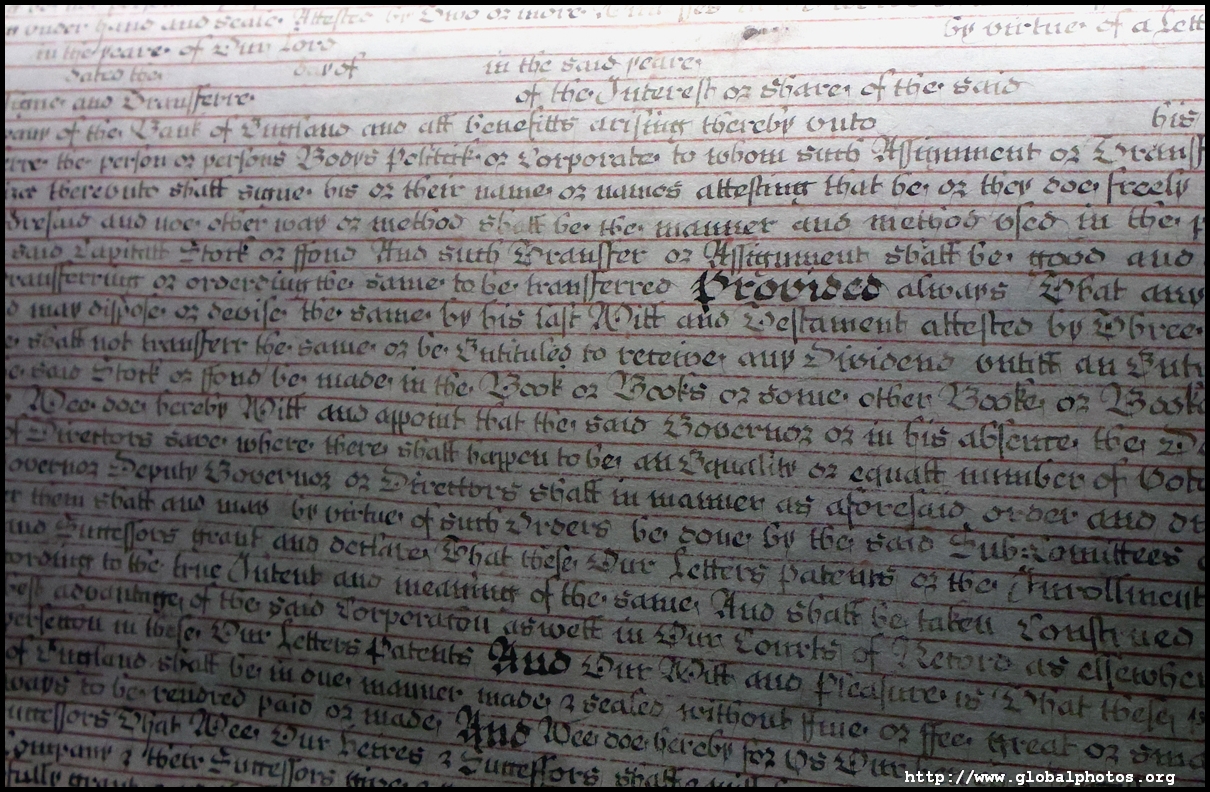 under hand and seale Attested by Two or more
by virtue of a Lett
in the yeare of Our Lord
dated the day of in the said yeare
signe and Transferre of the Interest or share of the said
pany of the Bank of England and all benefitts arising thereby unto his
the person or persons Bodys Politick or Corporate to whom such Assignment or Transf
thereunto shall signe his or their name or names attesting that he or they doe freely
oresaid and noe other way or method shall be the manner and method used in the p
said Capitall Stock or ffond And such Transfer or Assignment shall be good and
ransferring or ordering the same to be transferred Provided always That any
may dispose or devise the same by his last Will and Testament attested by Three
shall not transferr the same or be Entituled to receive any Dividend untill an Ent
said Stock or ffond be made in the Book or Books or some other Booke or Book
Wee doe hereby Will and appoint that the said Governor or in his absence the D
of Directors save where there shall happen to be an Equality or equall number of Vot
overnor Deputy Governor or Directors shall in manner as aforesaid order and di
them shall and may by virtue of such Orders be done by the said Sub:Comittees
and Successors grant and declare That these Our Letters Patents or the Inrollment
cording to the true Intent and meaning of the same And shall be taken Construed
best advantage of the said Corporation aswell in Our Courts of Record as elsewher
perfection in these Our Letters Patents And Our Will and Pleasure is That these
of England shall be in due manner made & sealed without ffine or ffee great or sma
ways to be rendred paid or made And Wee doe hereby for Us Our
uccessors That Wee Our heires & Successors shall
Company & their Successors give
fully grant
http://www.globalphotos.org